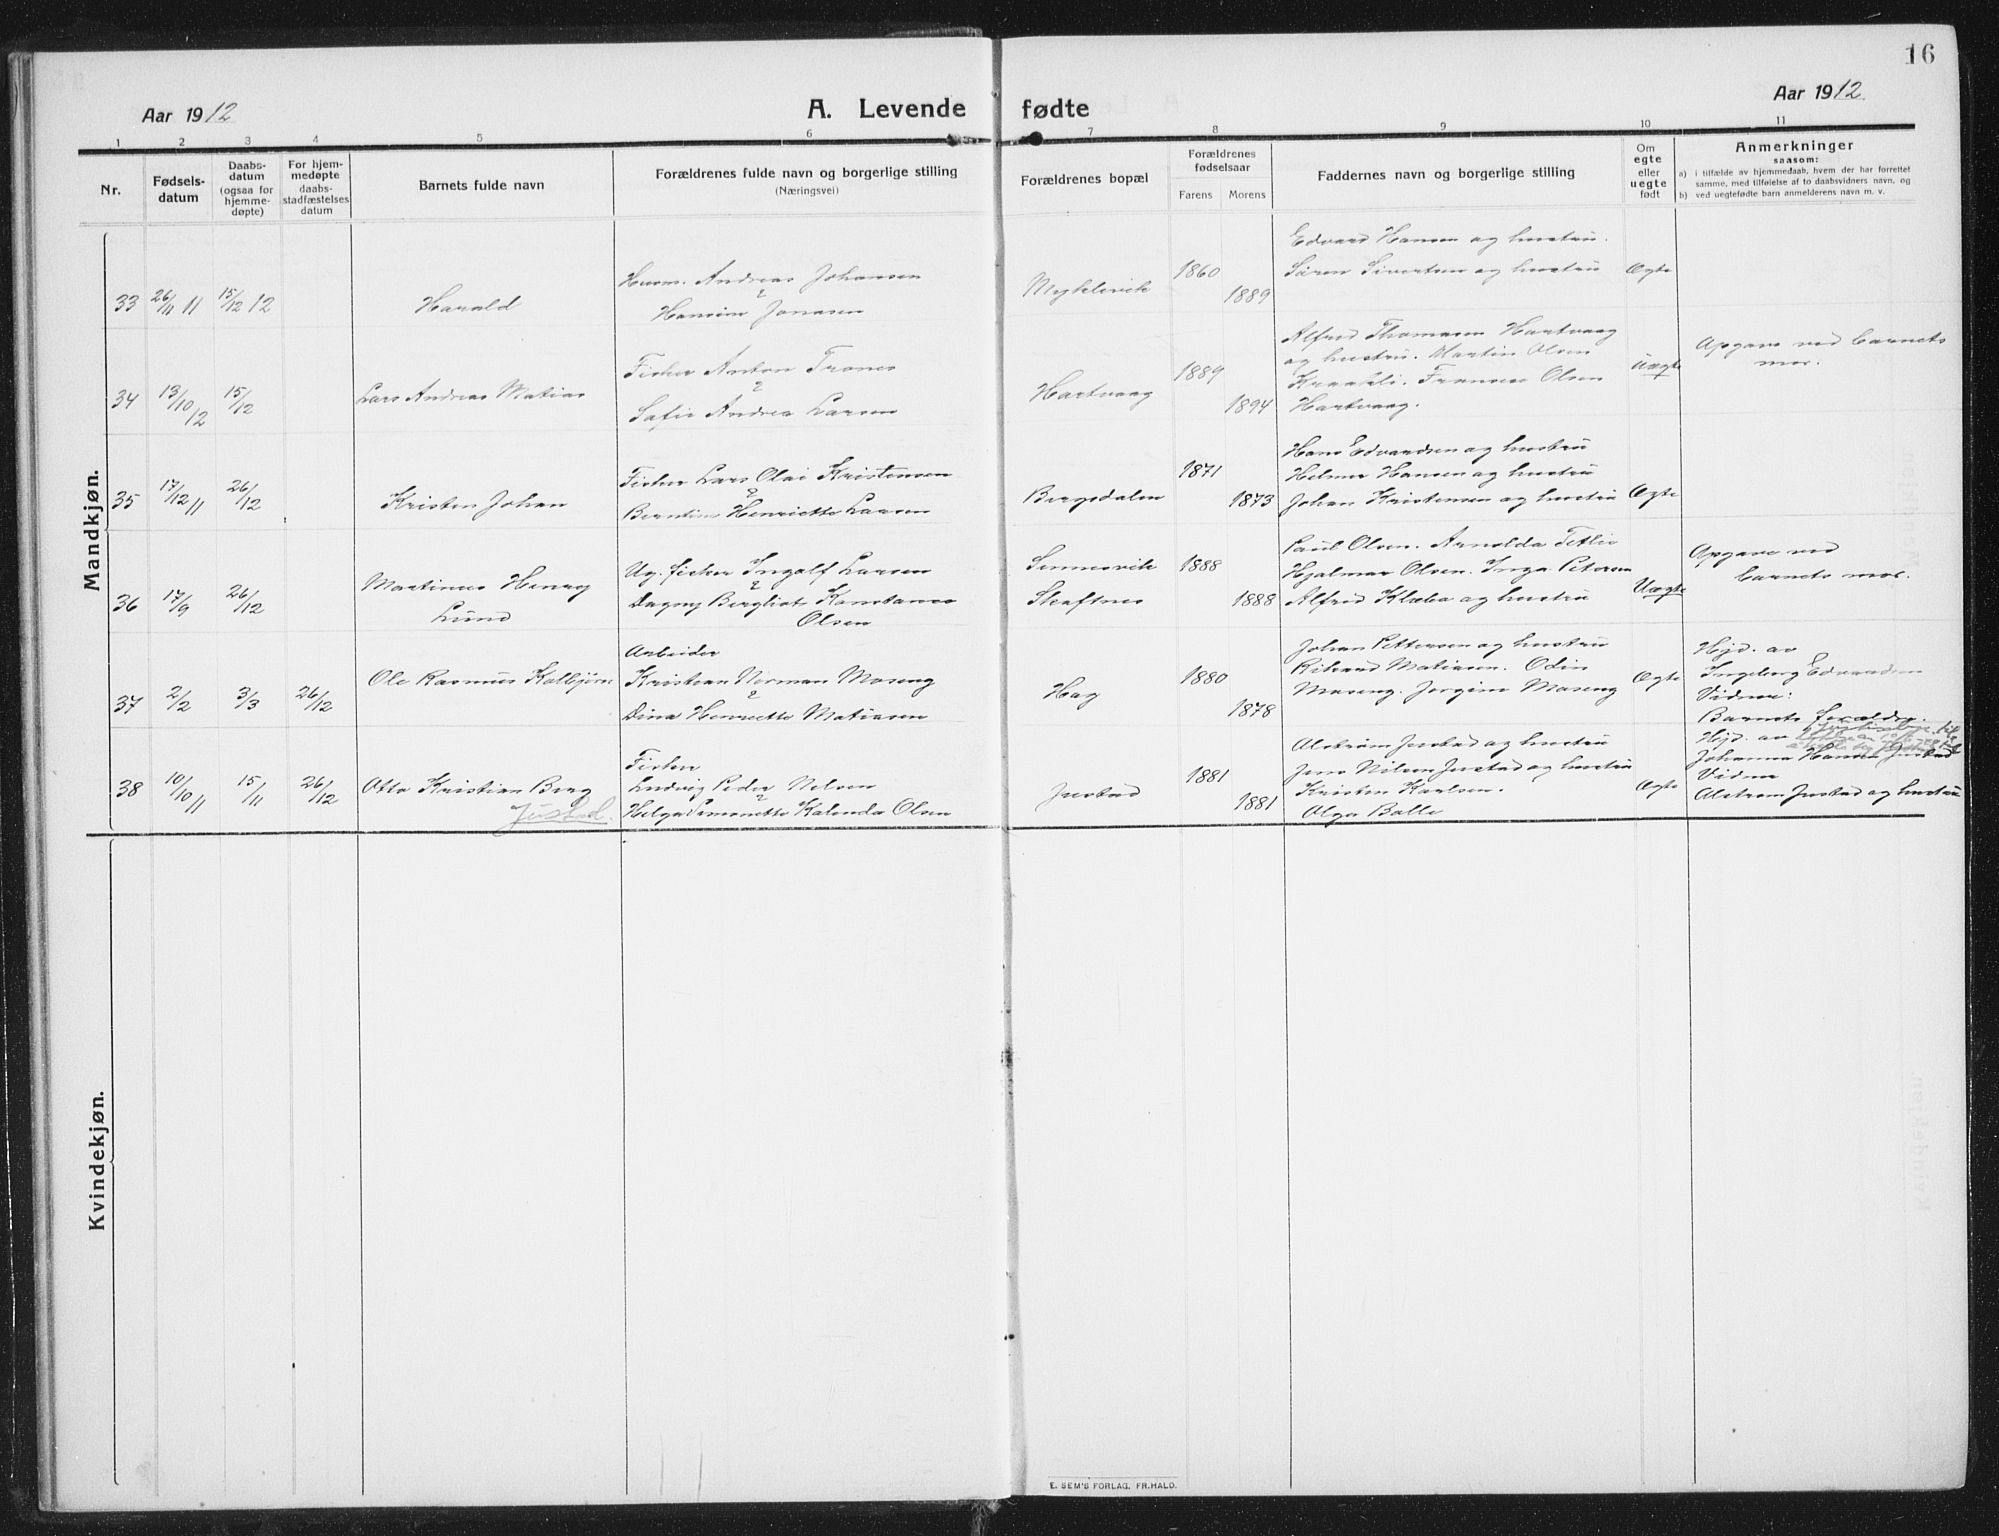 16
Aar 1912
A. Levende fødte
Aar 1912
1 2 3 4 5 6 7 8 9 10 11
Nr.
Fødsels-
datum
Daabs-
datum
(ogsaa for
hjemme-
døpte)
For hjem-
medøpte
daabs-
stadfæstelses
datum
Barnets fulde navn
Forældrenes fulde navn og borgerlige stilling
(Næringsvei)
Forældrenes bopæl
Forældrenes
fødselsaar
Farens Morens
Faddernes navn og borgerlige stilling
Om
egte
eller
uegte
født
Anmerkninger
saasom:
a) i tilfælde av hjemmedaab, hvem der har forrettet
samme, med tilføielse af to daabsvidners navn, og
b) ved uegtefødte barn anmelderens navn m. v.
Mandkjøn.
33 26/11 11 15/12 12 Harald
Husm. Andreas Johansen
Hansine Jonasen
Myklevik 1860 1889
Edvard Hansen og hustru.
Sören Sivertsen og hustru
Ægte
34 13/10 12 15/12 Lars Andreas Matias
Fisker Anton Trones
Sofie Andrea Larsen
Hartvaag 1889 1894
Alfred Thomasen Hartvaag
og hustru. Martin Olsen
Kraakli. Fransese Olsen
Hartvaag.
Uægte
Opgave ved barnets
mor.
35 17/12 11 26/12 Kristen Johan
Fisker Lars Olai Kristensen
Berntine Henriette Larsen
Bergsdalen 1871 1873
Hans Edvardsen og hustru
Helmer Hansen og hustru
Johan Kristensen og hustru
Ægte
36 17/9 26/12 Martines Henry
Lund
Ug. fisker Ingolf Larsen
Dagny Bergliot Konstance
Olsen
Sennesvik
Skaftnes
1888 1888
Paul Olsen. Arnolda Tetlie
Hjalmar Olsen. Inga Petersen
Alfred Klæbo og hustru
Uægte
Opgave ved
barnets mor.
37 2/2 3/3 26/12 Ole Rasmus Kolbjörn
Arbeider
Kristian Norman Moseng
Dina Henriette Matiasen
Hag 1880 1878
Johan Pettersen og hustru
Rikard Matiasen. Odin
Moseng. Jörgine Moseng
Ægte
Hjd. av
Ingeborg Edvardsen
Vidner:
Barnets forældre.
38 10/10 11 15/11 26/12 Otto Kristian Berg
Justad.
Fisker
Ludvig Peder Nilsen
Helga Simonette Kalenda Olsen
Justad 1881 1881
Alström Justad og hustru
Jens Nilsen Justad og hustru
Kristen Karlsen.
Olga Balle
Ægte
Hjd. av
Johanna Hansen Justad
Vidner
Alström Justad og hustru
Kvindekjøn.
E. SEM'S FORLAG, FR.HALD.